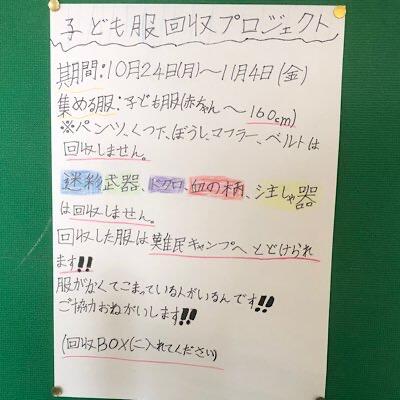 子ども服回収プロジェクト
期間:10月24日(月)〜11月4日(金)
集める服:子ども服(赤ちゃん〜160cm)
※パンツ、くつ下、ぼうし、マフラー、ベルトは
回収しません。
迷彩、武器、ドクロ、血の柄、注しゃ器
は回収しません。
回収した服は難民キャンプへとどけられ
ます!!
服がなくてこまっている人がいるんです!!
ご協力おねがいします!!
(回収BOXに入れてください)